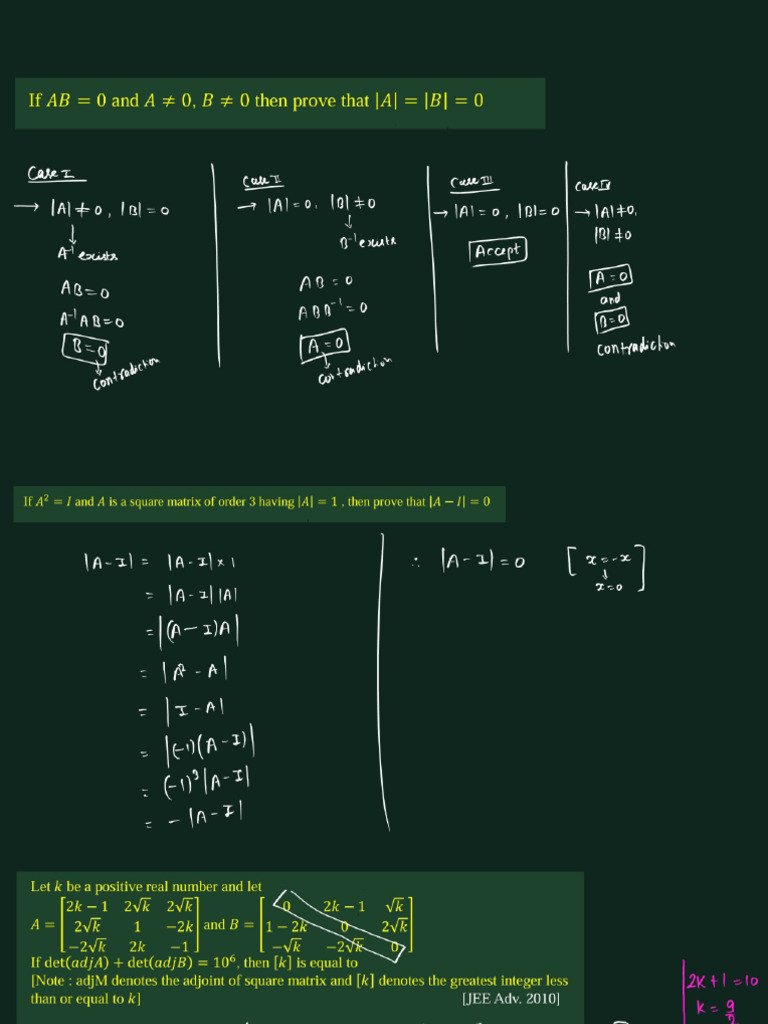 If AB = 0 and A ≠ 0, B ≠ 0 then prove that |A| = |B| = 0
Case I
→ |A| ≠ 0, |B| = 0
↓
A⁻¹ exists
AB = 0
A⁻¹AB = 0
B = 0
↳ contradiction
Case II
→ |A| = 0, |B| ≠ 0
↓
B⁻¹ exists
AB = 0
ABB⁻¹ = 0
A = 0
↳ contradiction
Case III
→ |A| = 0, |B| = 0
Accept
Case IV
→ |A| ≠ 0,
|B| ≠ 0
A = 0
and
B = 0
contradiction
If A² = I and A is a square matrix of order 3 having |A| = 1 , then prove that |A − I| = 0
|A − I| = |A − I| × 1
= |A − I| |A|
= |(A − I)A|
= |A² − A|
= |I − A|
= |(−1)(A − I)|
= (−1)³ |A − I|
= − |A − I|
∴ |A − I| = 0 [x = −x
↓
x = 0]
Let k be a positive real number and let
A = [2k − 1 2√k 2√k; 2√k 1 −2k; −2√k 2k −1] and B = [0 2k − 1 √k; 1 − 2k 0 2√k; −√k −2√k 0]
If det(adjA) + det(adjB) = 10⁶, then [k] is equal to
[Note : adjM denotes the adjoint of square matrix and [k] denotes the greatest integer less
than or equal to k] [JEE Adv. 2010]
2k + 1 = 10
k = 9/2